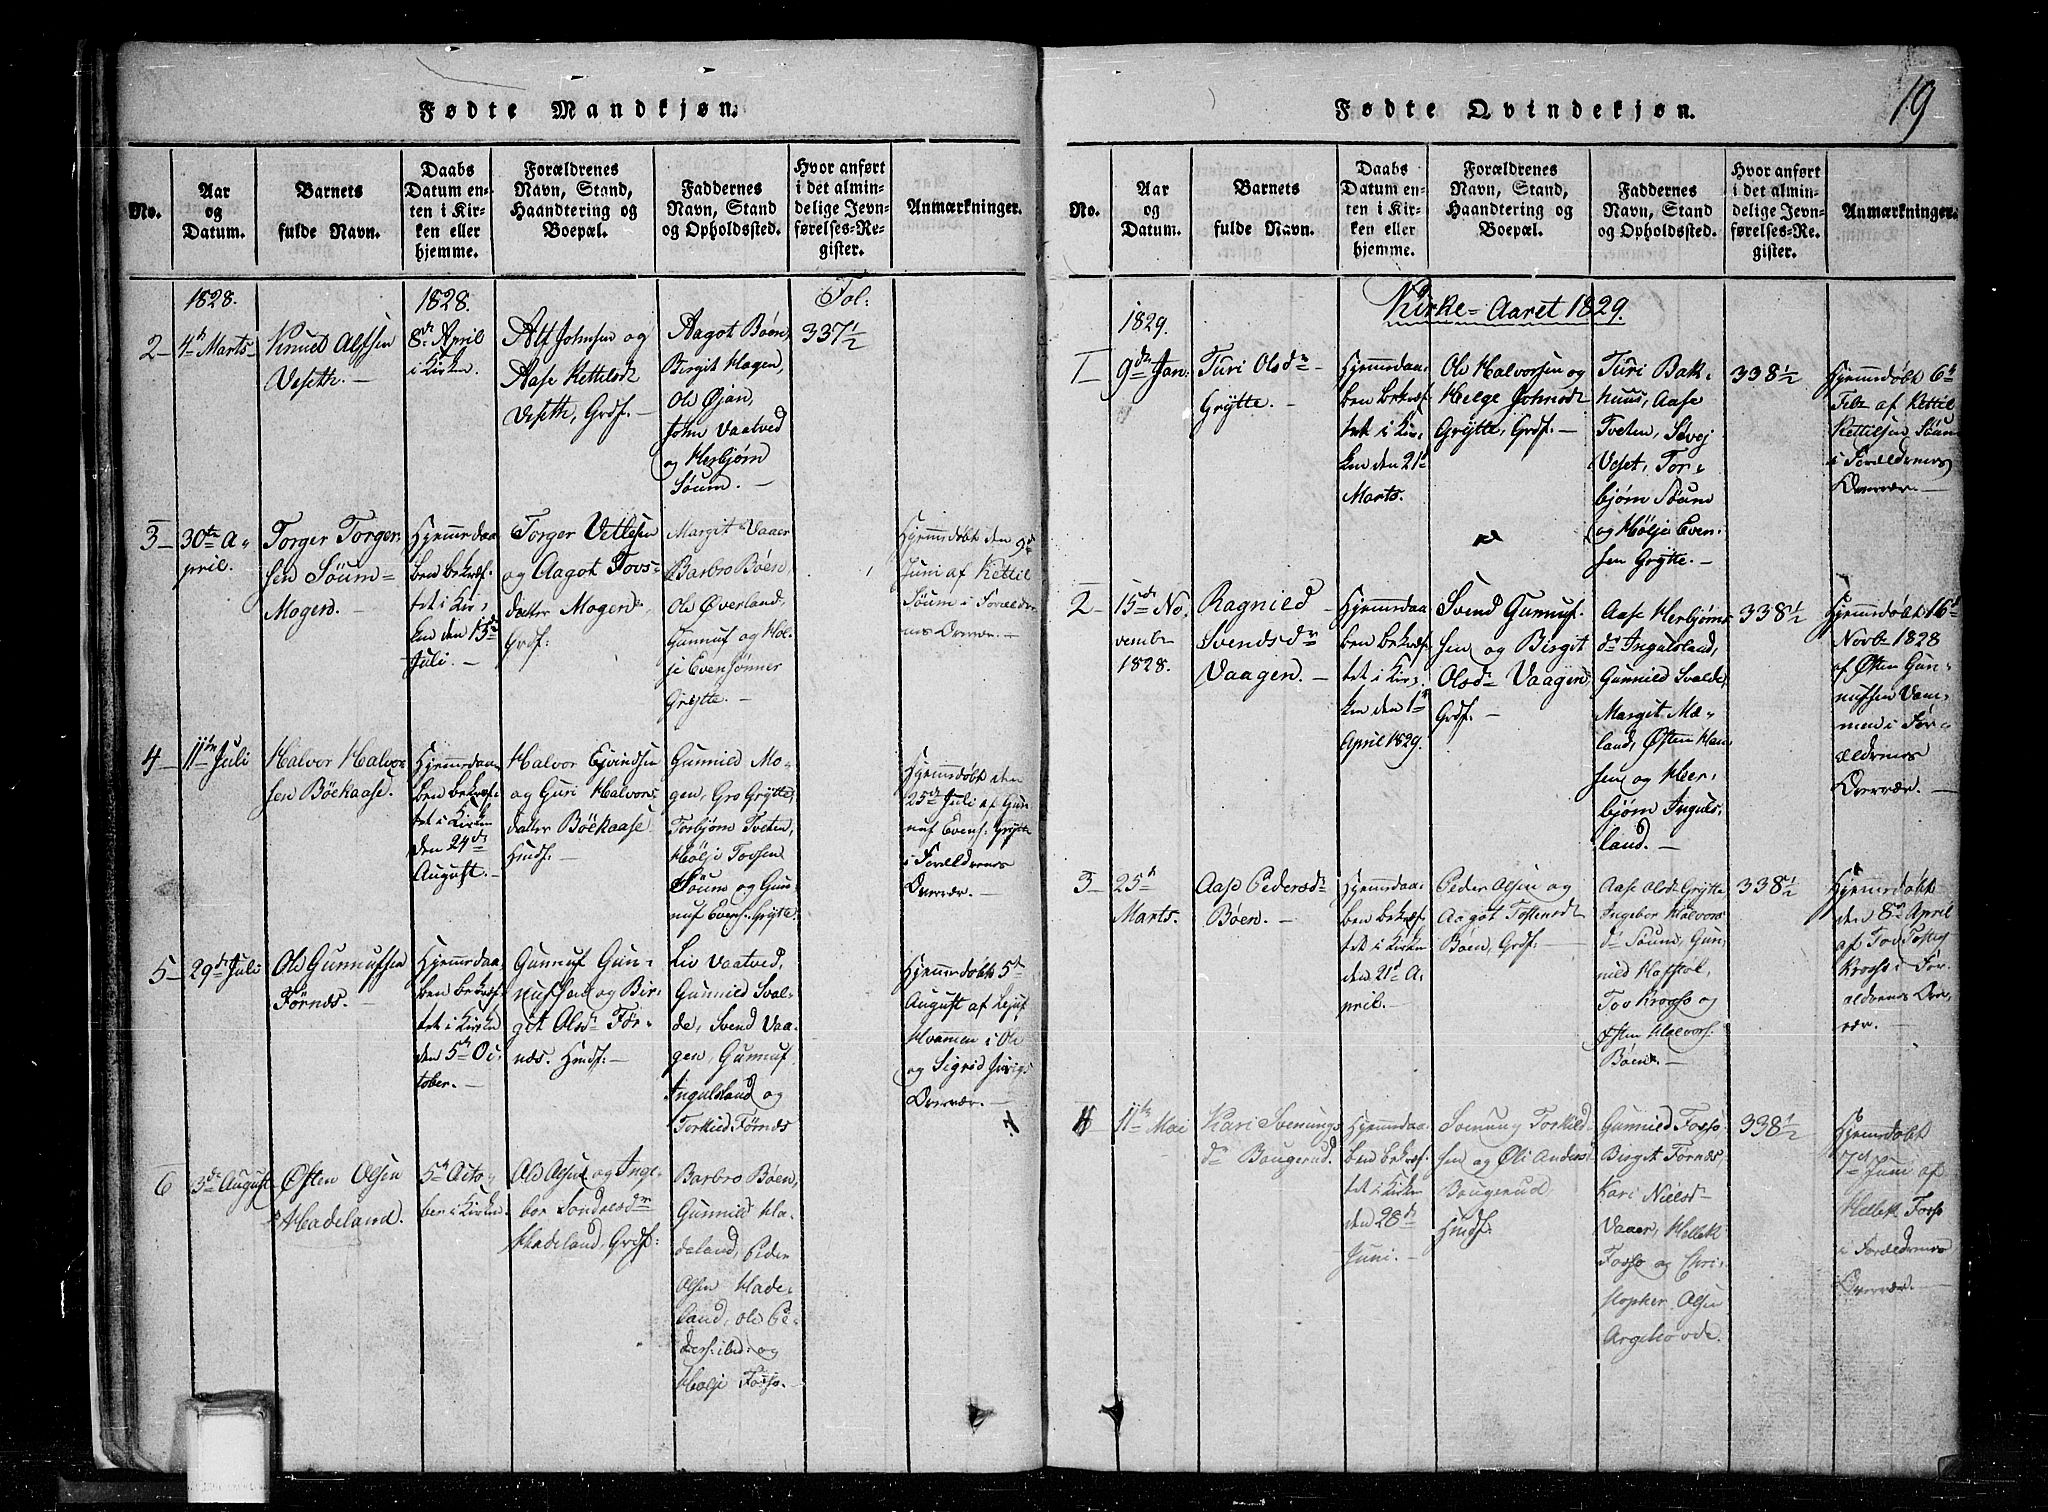 Fødte Mandkjøn.
No.
Aar
og
Datum.
Barnets
fulde Navn.
Daabs
Datum en-
ten i Kir-
ken eller
hjemme.
Forældrenes
Navn, Stand,
Haandtering og
Boepæl.
Faddernes
Navn, Stand
og Opholdssted.
Hvor anført
i det almin-
delige Jevn-
førelses-Re-
gister.
Anmærkninger.
1828.
1828.
Fol:
2
4de Marts
Knud Alfsen
Veseth.
8de April
i Kirken.
Alf Johnsen og
Aase Kettilsdr
Veseth, Grdf.
Aagot Bøen,
Birgit Hagen,
Ole Øjan,
John Vaatved
og Herbjørn
Søum.
337½
3
30te A-
pril.
Torger Torger-
sen Søum-
Mogen.
Hjemmedaa-
ben bekræf-
tet i Kir-
ken den 13de
Juli.
Torger Vetlesen
og Aagot Tovs-
datter Mogen,
Grdf:
Margit Vaaer
Barbro Bøen,
Ole Øverland,
Gunnuf og Høl-
je Evensønner
Grytte.
Hjemmedøbt den 9de
Juni af Kettil
Søum i Forældre-
nes Overvær.
4
11te Juli
Halvor Halvor-
sen Bøekaase.
Hjemmedaa-
ben bekræf-
tet i Kirken
den 24de
August.
Halvor Ejvindsen
og Guri Halvors-
datter Bøekaase
Hmdf:
Gunnild Mo-
gen, Gro Grytte,
Torbjørn Tveten,
Hølje Tovsen
Søum og Gun-
nuf Evens: Grytte.
Hjemmedøbt den
25de Juli af Gun-
nuf Evens: Grytte
i Forældrenes
Overvær.
5
29de Juli
Ole Gunnufsen
Førnæs.
Hjemmedaa-
ben bekræf-
tet i Kirken
den 5te Oc-
tober.
Gunnuf Gun-
nufsen og Bir-
git Olsdr Før-
næs. Hmdf:
Liv Vaatved,
Gunnild Sval-
de, Svend Vaa-
gen, Gunnuf
Ingulsland og
Torkild Førnæs
Hjemmedøbt 5te
August af Lejuf
Hvammen i Ole
og Sigrid
Overvær.
6
3de August
Østen Olsen
Hadeland.
5te Octo-
ber i Kirken.
Ole Olsen og Inge-
bor Sondresdr
Hadeland, Grdf:
Barbro Bøen,
Gunnild Ha-
deland, Peder
Olsen Hade-
land, Ole Pe-
ders: ibd: og
Hølje Fosso.
19
Fødte Qvindekjøn.
No.
Aar
og
Datum.
Barnets
fulde Navn.
Daabs
Datum en-
ten i Kir-
ken eller
hjemme.
Forældrenes
Navn, Stand,
Haandtering og
Boepæl.
Faddernes
Navn, Stand
og Opholdssted.
Hvor anført
i det almin-
delige Jevn-
førelses-Re-
gister.
Anmærkninger.
Kirke-Aaret 1829.
1829.
1
9de Jan.
Turi Olsdr
Grytte.
Hjemmedaa-
ben bekræf-
tet i Kir-
ken den 21de
Marts.
Ole Halvorsen og
Helge Johnsdr
Grytte, Grdf.
Turi Bak-
huus, Aase
Tveten, Søvej
Veset, Tor-
bjørn Søum
og Hølje Even-
sen Grytte.
338½
Hjemmedøbt 6te
Febr af Kettil
Kettilsen Søum
i Forældrenes
Overvær.
2
15de No-
vember
1828.
Ragnild
Svendsdr
Vaagen.
Hjemmedaa-
ben bekræf-
tet i Kir-
ken den 1ste
April 1829.
Svend Gunnuf-
sen og Birgit
Olsdr Vaagen
Grdf.
Aase Herbjørns-
dr Ingulsland,
Gunnild Svalde,
Margit Mæ-
land, Østen Han-
sen og Her-
bjørn Inguls-
land.
338½
Hjemmedøbt 16de
Novbr 1828
af Østen Gun-
nufsen Vam-
men i For-
ældrenes
Overvær.
3
25de
Marts.
Aase Pedersdr
Bøen.
Hjemmedaa-
ben bekræf-
tet i Kirken
den 21de A-
pril.
Peder Olsen og
Aagot Tostensdr
Bøen, Grdf:
Aase Olsdr Grytte
Ingebor Halvors-
dr Søum, Gun-
nild Hafstøl,
Tov Krosso og
Østen Halvors:
Bøen.
338½
Hjemmedøbt
den 8de April
af Tov Tostens:
Krosso i For-
ældrenes Over-
vær.
4
11te Mai
Kari Svenungs-
dr Bougerud.
Hjemmedaa-
ben bekræf-
tet i Kirken
den 28de
Juni.
Svenung Torkild-
sen og Øli Andersdr
Bougerud
Hmdf.
Gunnild Fosso
Birgit Førnæs,
Kari Nielsdr
Vaaer, Hellek
Fosso og Chri-
stopher Olsen
Argehovde.
338½
Hjemmedøbt
7de Juni af
Hellek Fosso
i Forældrenes
Overvær.